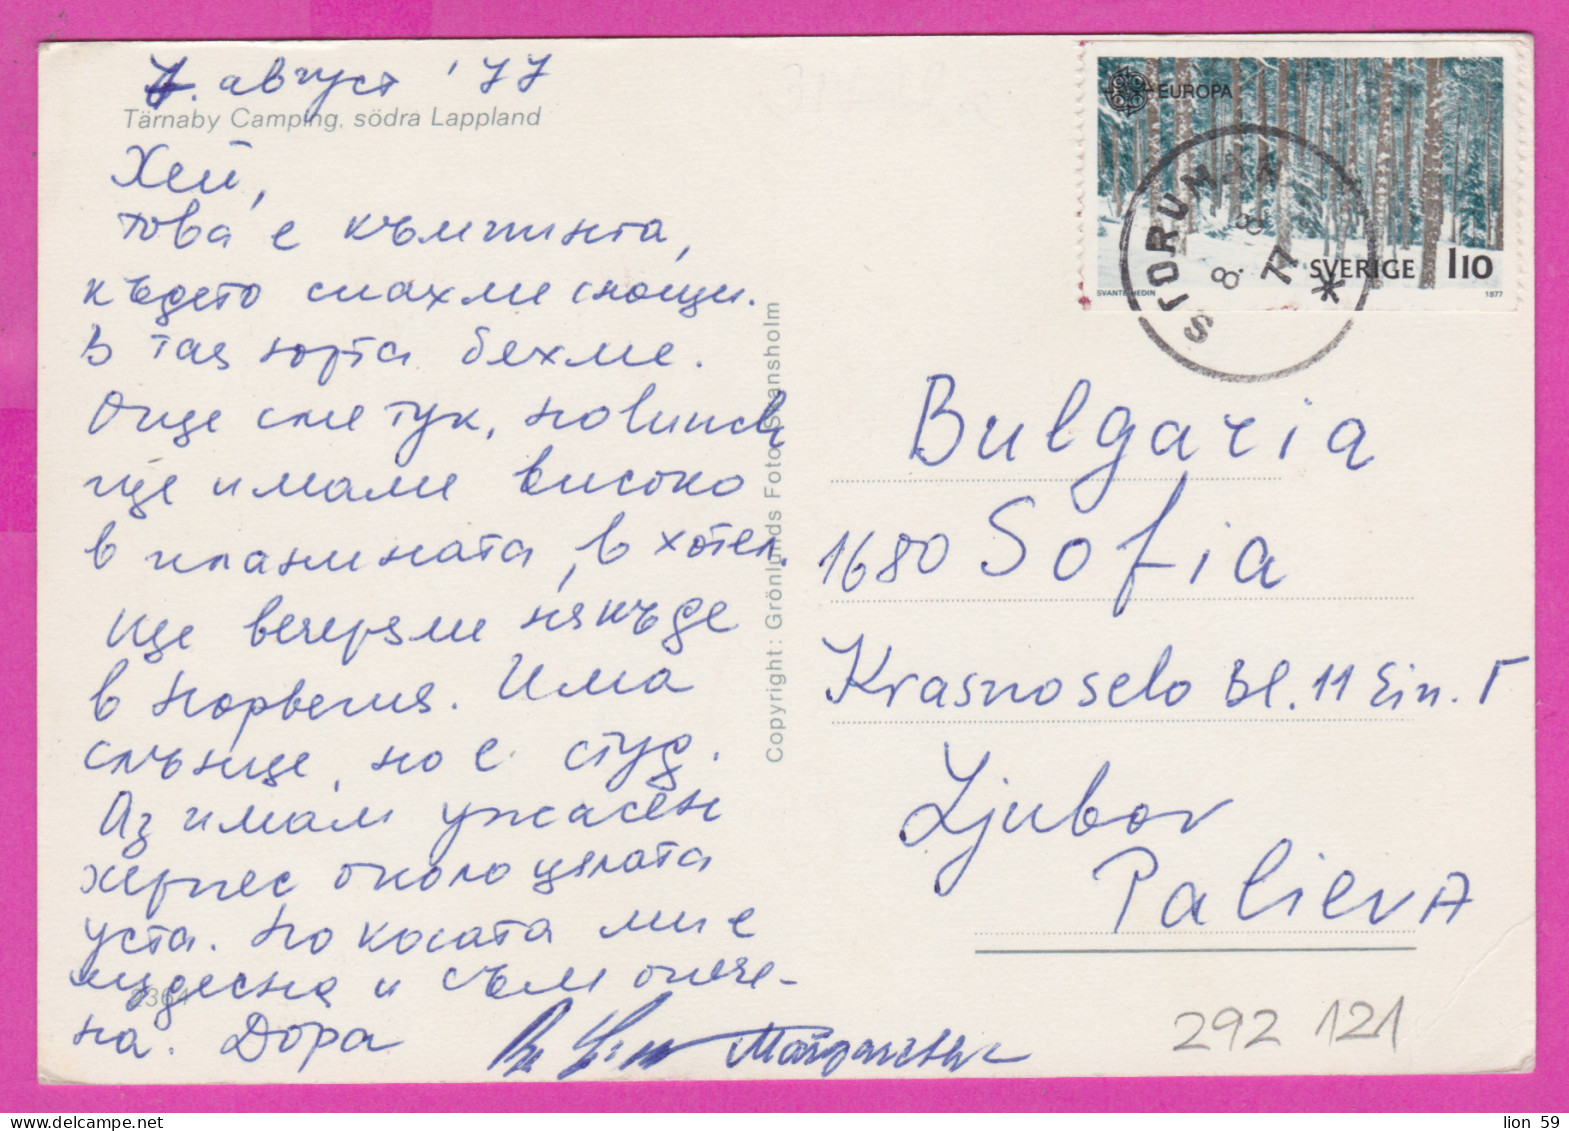 7. август '77
Tärnaby Camping, södra Lappland
Хей,
това е къмпинга,
където спахме снощи.
В тая юрта бяхме.
Още сме тук, но
ще имаме високо
в планината, в хотел.
Ще вечеряме някъде
в Норвегия. Има
слънце, но е студ.
Аз имам ужасен
херпес около цялата
уста. Но косата ми е
чудесна и съм опече-
на. Дора
2364
Copyright: Grönlunds Foto, Skansholm
EUROPA
SVERIGE 110
SVANTE HEDIN 1977
STORUMAN
8. 8 77
Bulgaria
1680 Sofia
Krasnoselo Bl. 11 Ein. Г
Ljubov
Palieva
292 121
lion 59